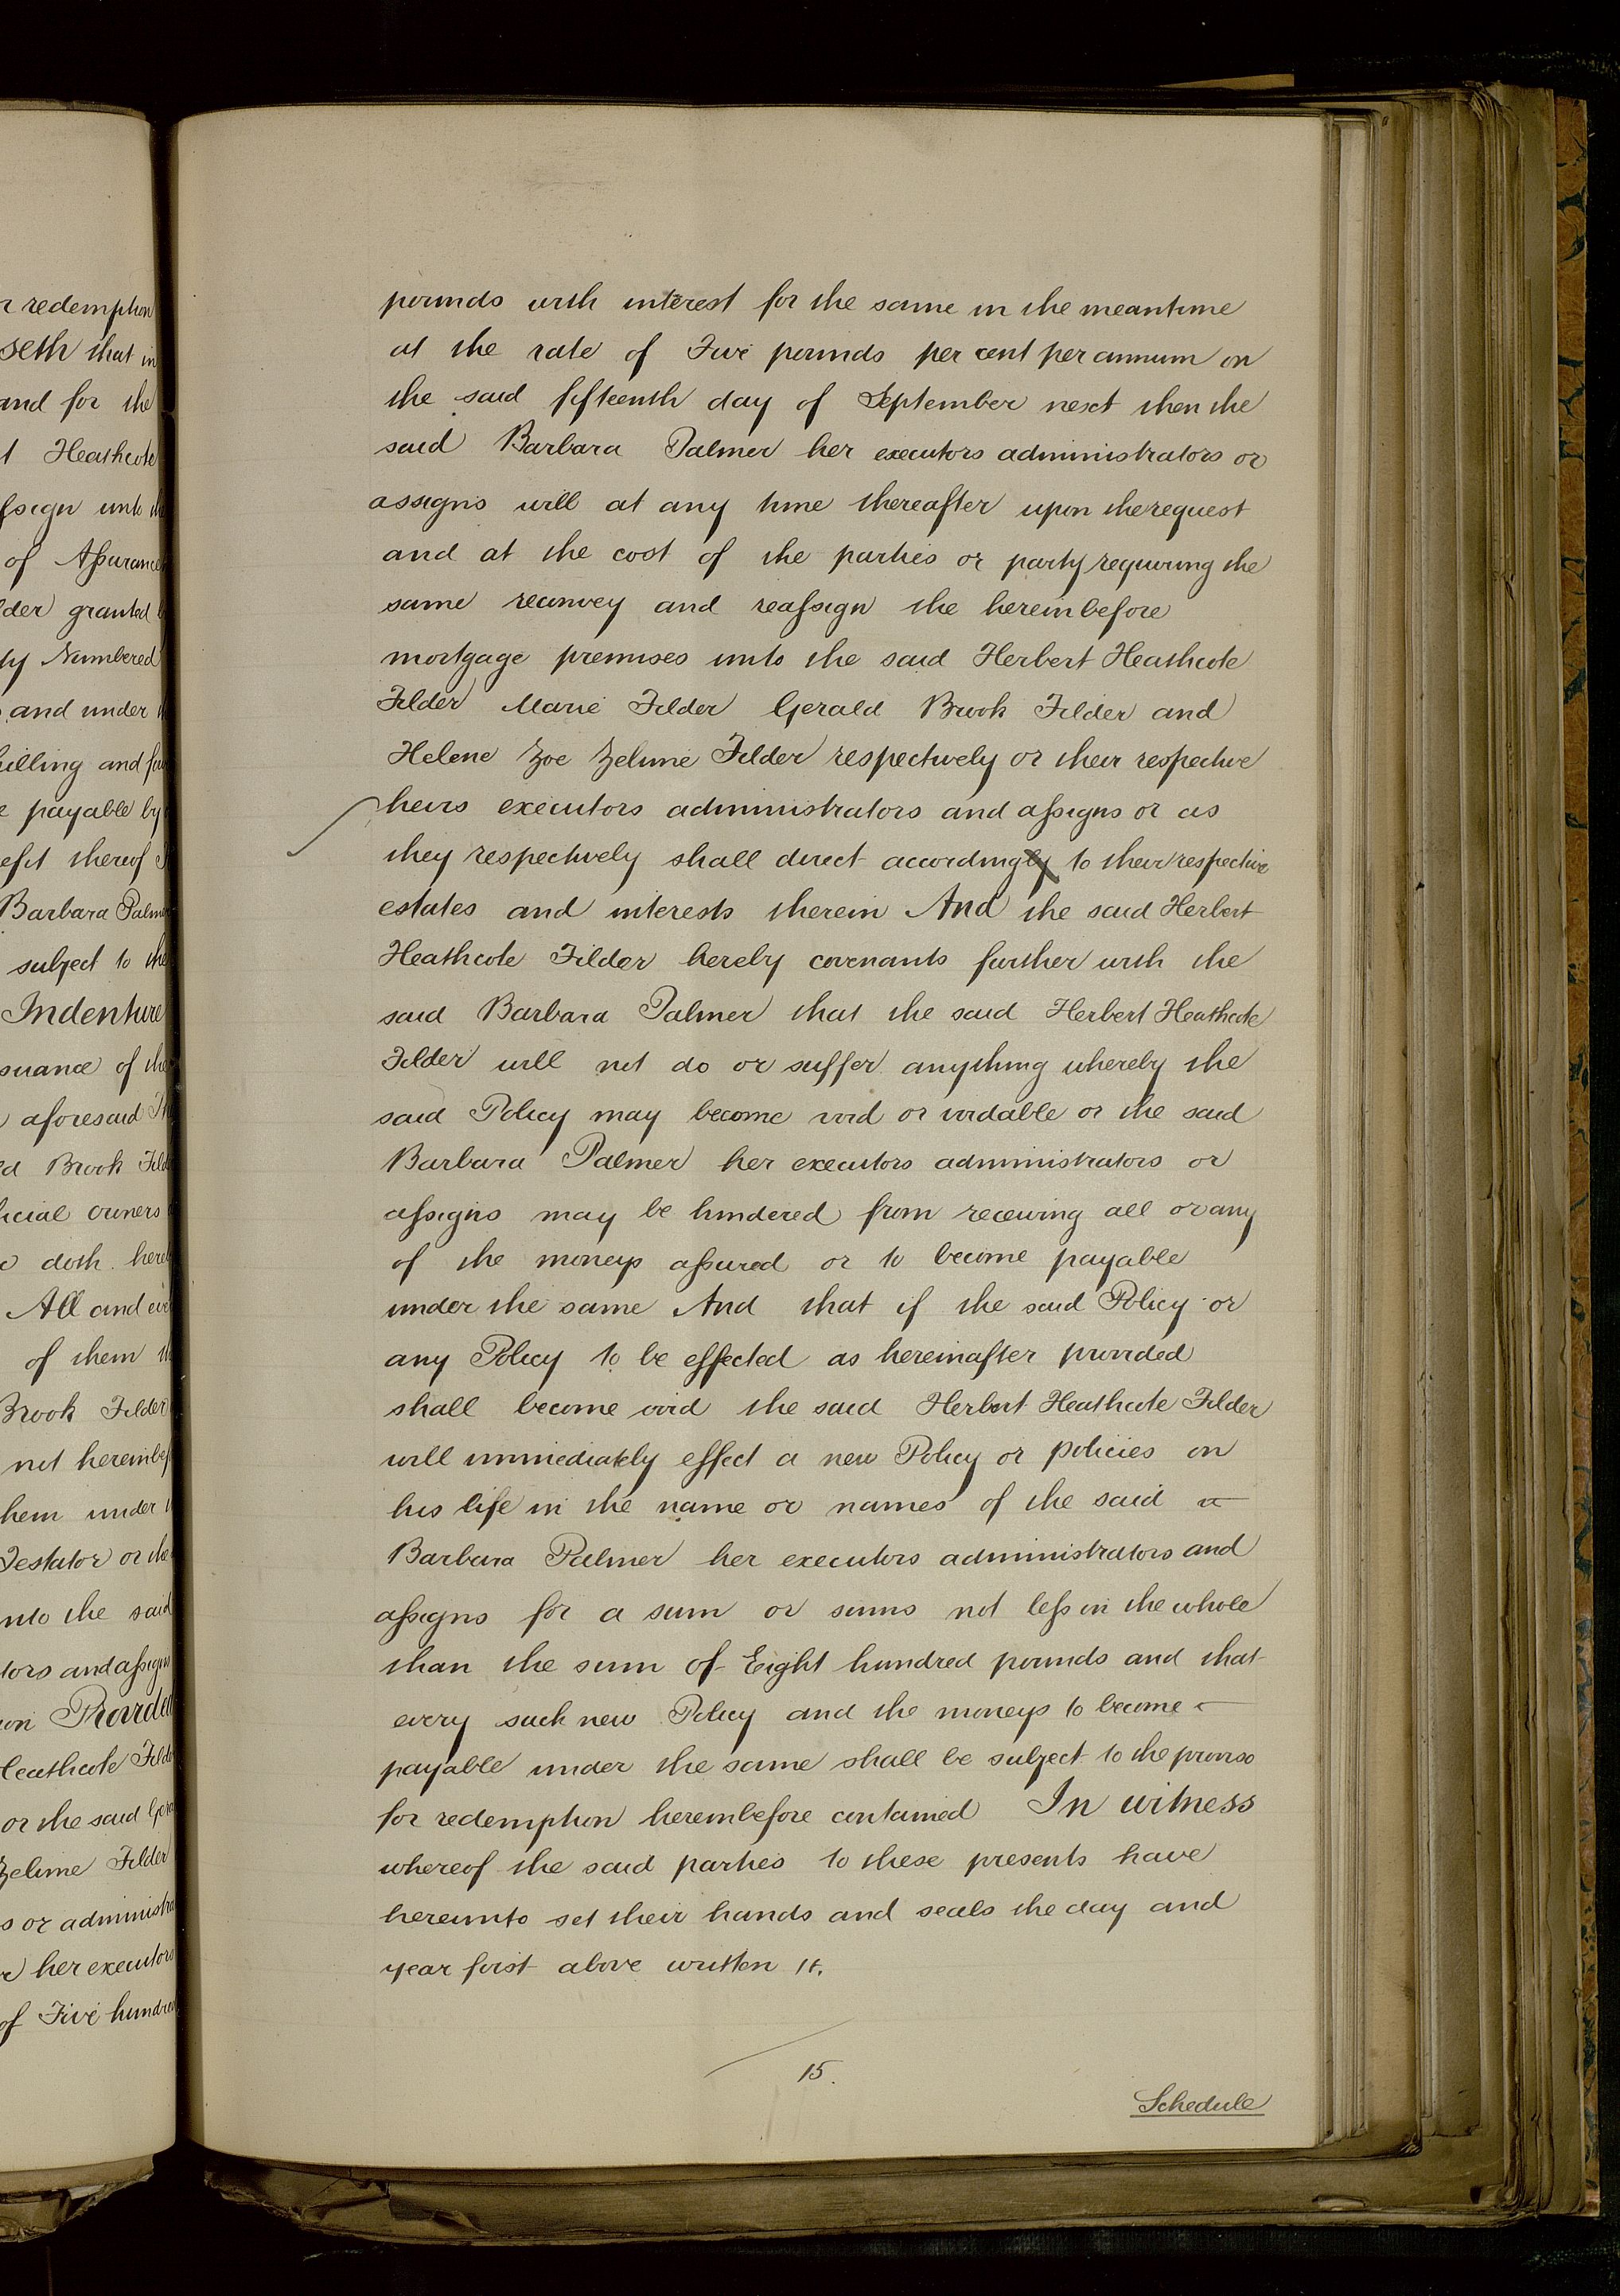 r redemption
seth that in
and for the
t Heathcote
ssign unto the
of Assurance
lder granted
ty Numbered
and under
hilling and
e payable by
efit thereof
Barbara Palmer
subject to the
Indenture
suance of the
aforesaid
d Brook Filder
ficial owners
doth hereby
All and
of them
Brook Filder
not hereinbef
hem under
Testator or the
nto the said
tors and assigns
on Provided
Heathcote Filder
or the said
Zelime Filder
s or administra
her executors
of Five hundred
pounds with interest for the same in the meantime
at the rate of Five pounds per cent per annum on
the said fifteenth day of September next then the
said Barbara Palmer her executors administrators or
assigns will at any time thereafter upon the request
and at the cost of the parties or party requiring the
same reconvey and reassign the hereinbefore
mortgage premises unto the said Herbert Heathcote
Filder Marie Filder Gerald Brook Filder and
Helene Zoe Zelime Filder respectively or their respective
heirs executors administrators and assigns or as
they respectively shall direct accordingly to their respective
estates and interests therein And the said Herbert
Heathcote Filder hereby covenants further with the
said Barbara Palmer that the said Herbert Heathcote
Filder will not do or suffer anything whereby the
said Policy may become void or voidable or the said
Barbara Palmer her executors administrators or
assigns may be hindered from receiving all or any
of the moneys assured or to become payable
under the same And that if the said Policy or
any Policy to be effected as hereinafter provided
shall become void the said Herbert Heathcote Filder
will immediately effect a new Policy or policies on
his life in the name or names of the said
Barbara Palmer her executors administrators and
assigns for a sum or sums not less in the whole
than the sum of Eight hundred pounds and that
every such new Policy and the moneys to become
payable under the same shall be subject to the proviso
for redemption hereinbefore contained In witness
whereof the said parties to these presents have
hereunto set their hands and seals the day and
year first above written
15.
Schedule